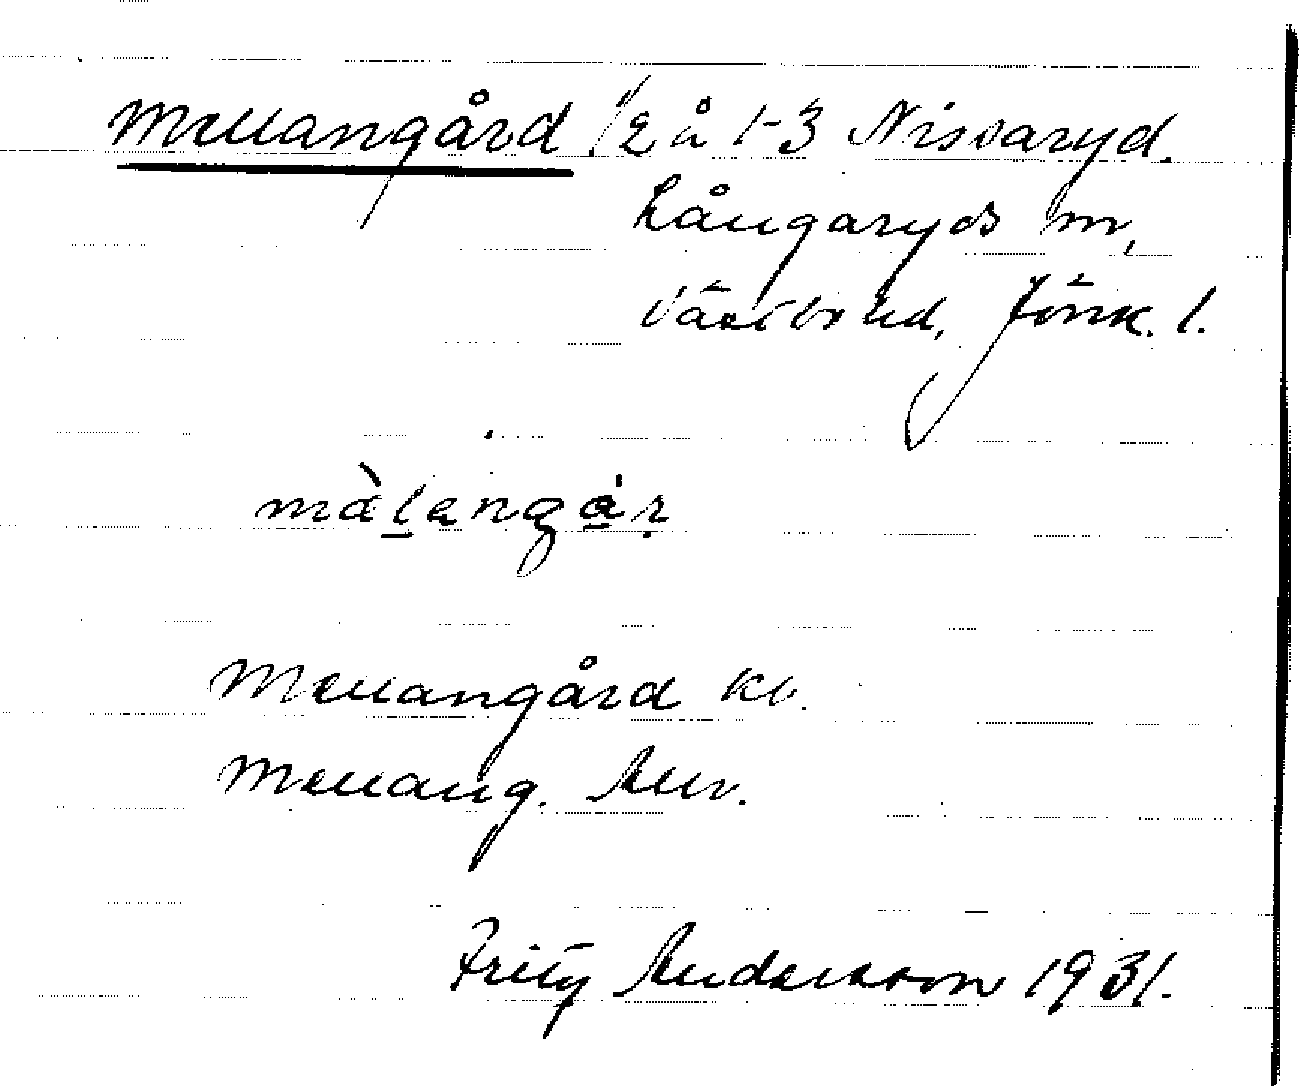 Mellangård 1/2 å 1-3 Nissaryd.
Långaryds sn,
Västbo hd, Jönk. l.
màlangár
Mellangård kb.
Mellang. Aur.
Fritz Andersson 1931.